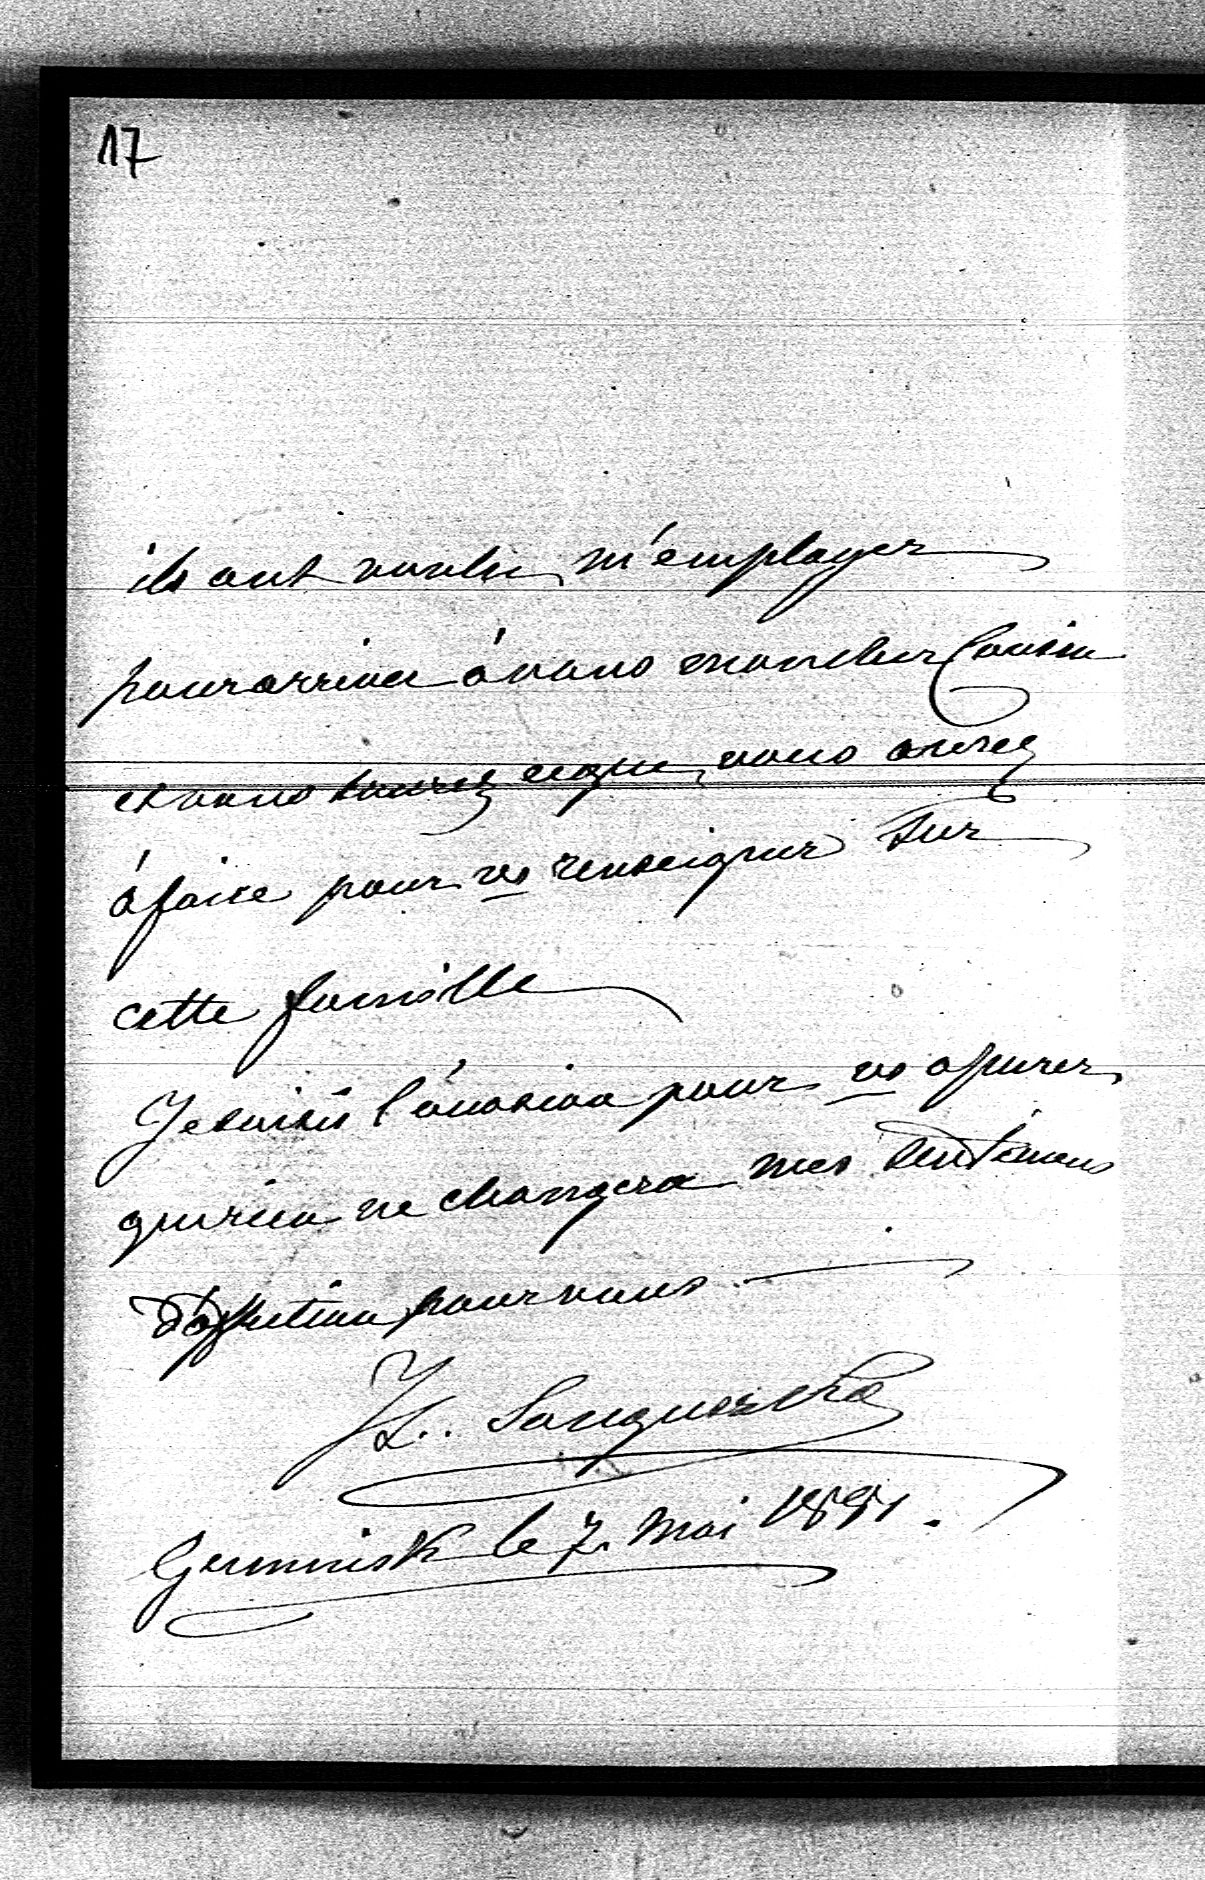 17
ils ont voulu m'employer
pour arriver à vous mon cher Cousin
et vous saurez ce que vous aurez
à faire pour vs renseigner sur
cette famille
Je saisis l'occasion pour vs assurer
que rien ne changera mes sentimens
d'affection pour vous.
le 7. Mai 1891.